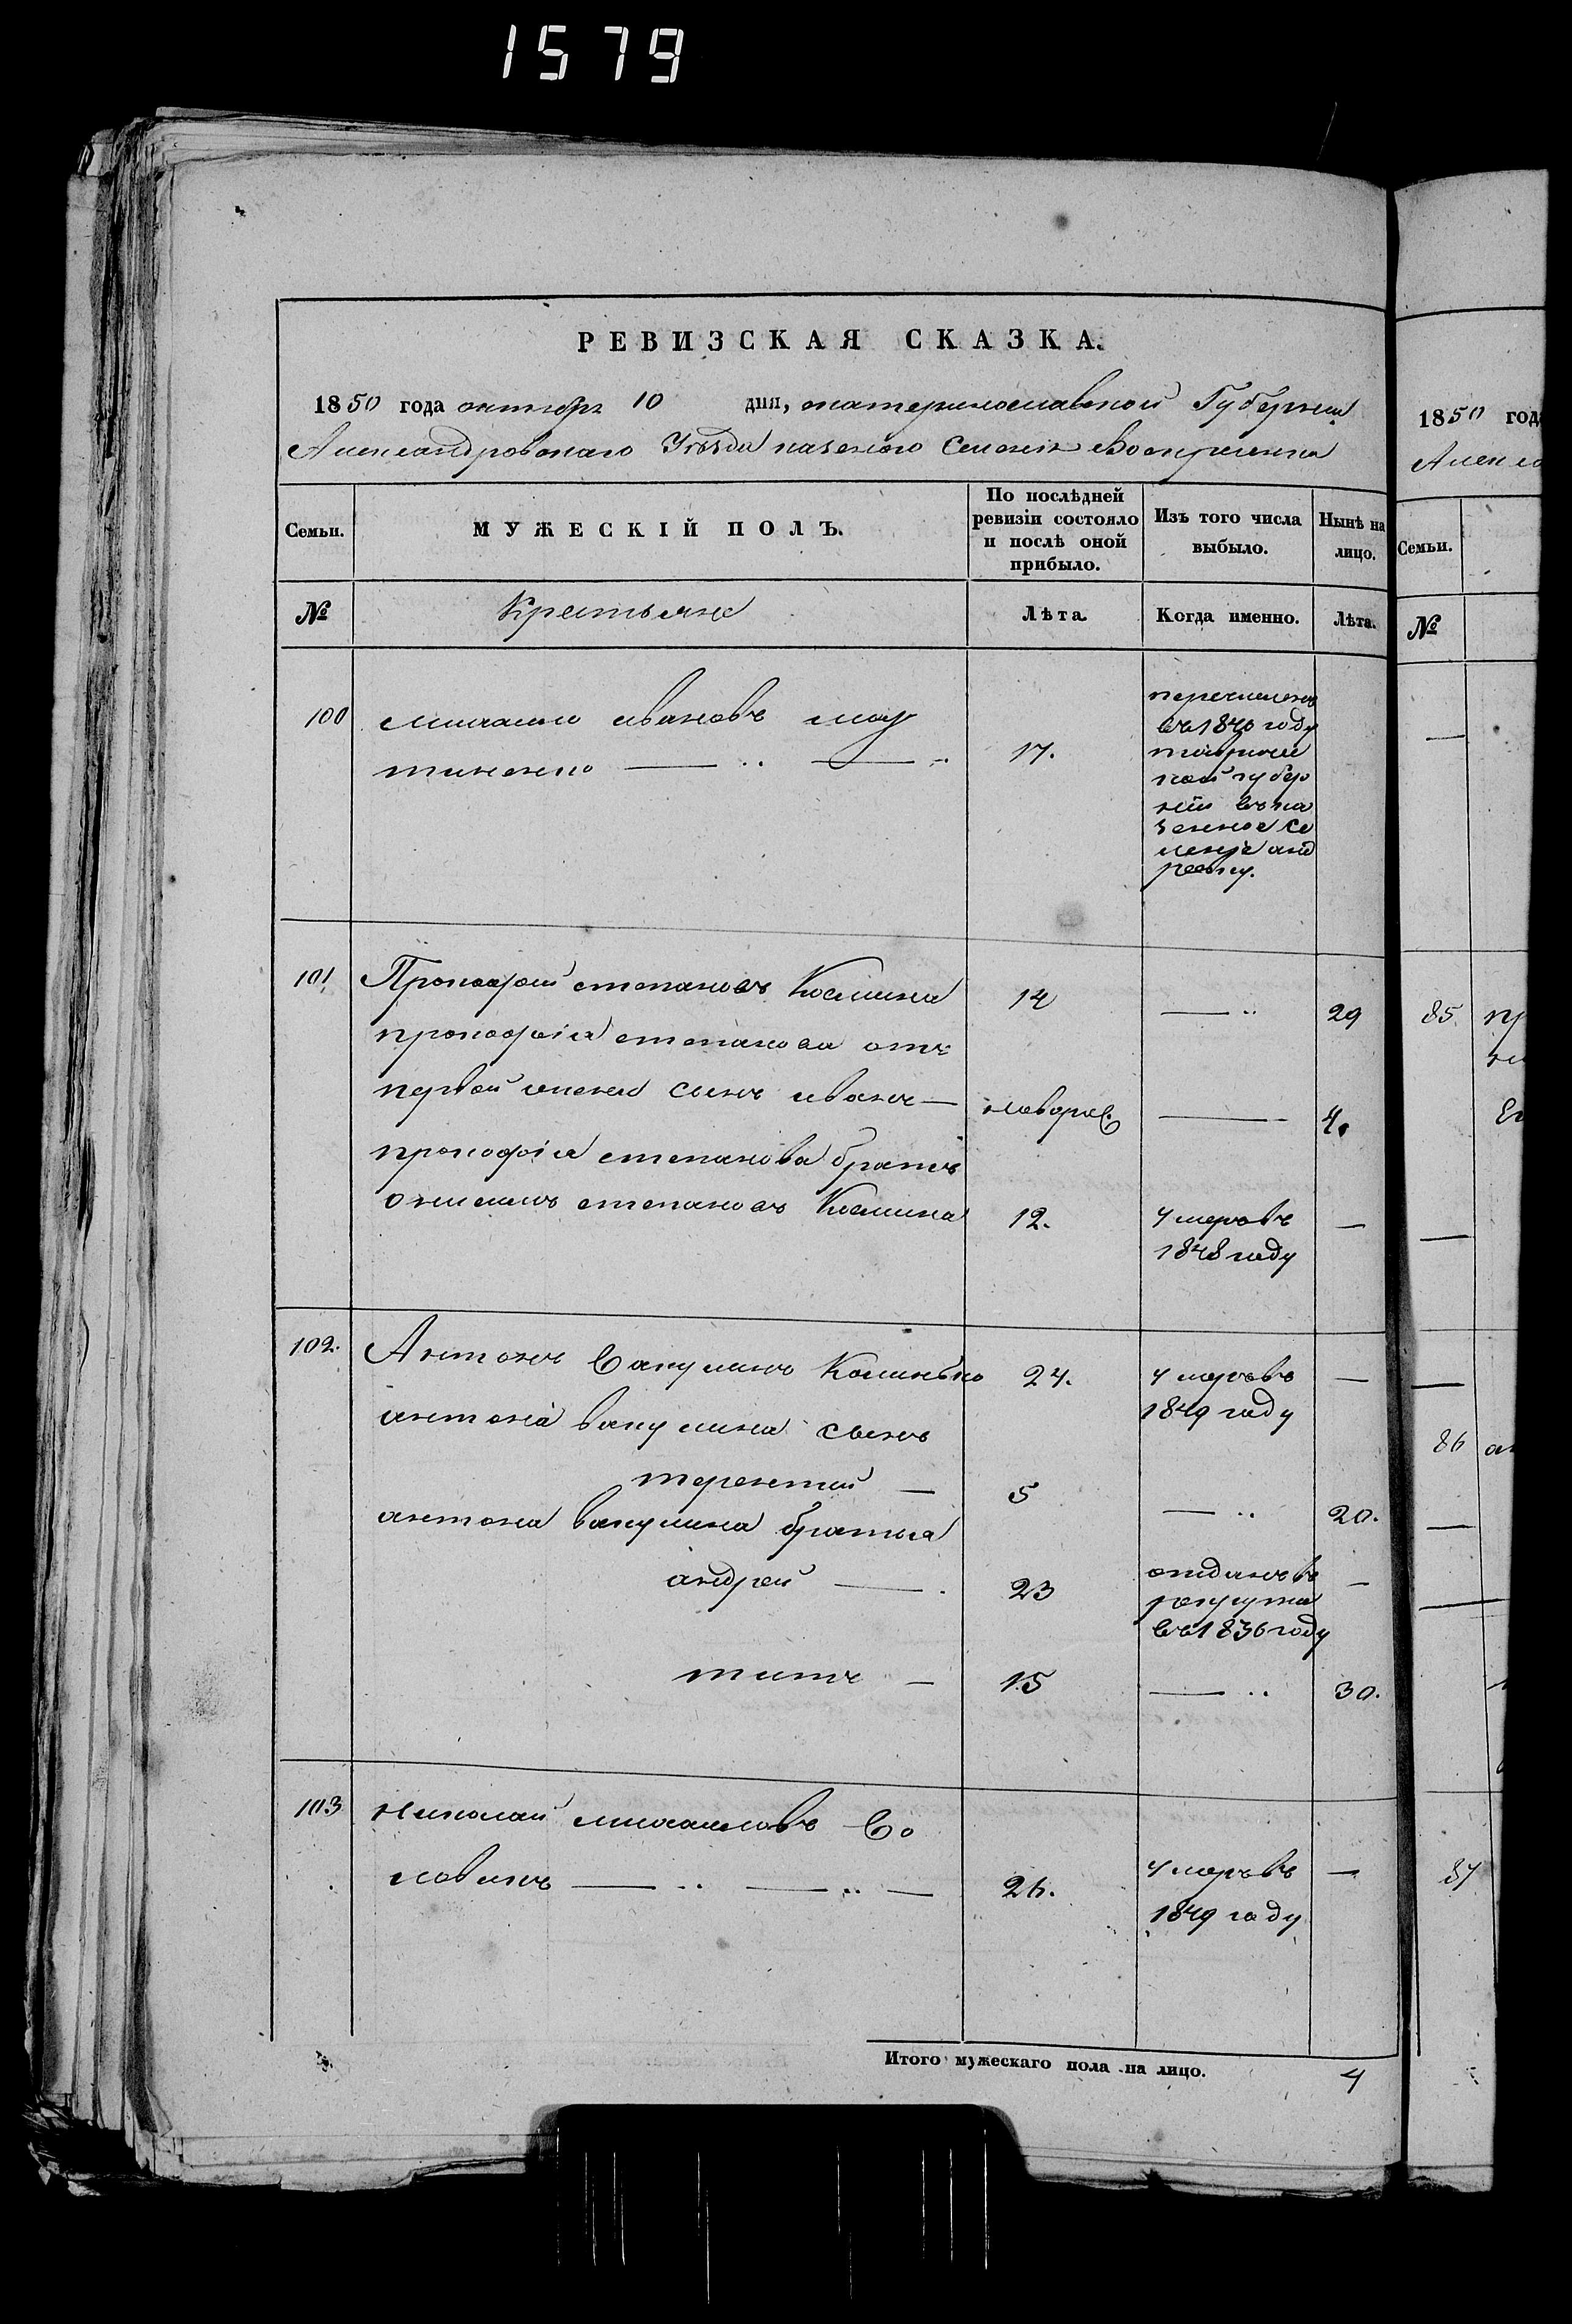 1579
РЕВИЗСКАЯ СКАЗКА.
1850 года октября 10 дня, екатеринославской Губерніи
Александровскаго Уѣзда казеннаго Селенія Воскресенка
Семьи.
МУЖЕСКІЙ ПОЛЪ.
По послѣдней ревизіи состояло и послѣ оной прибыло.
Изъ того числа выбыло.
Нынѣ на лицо.
№
Крестьяне
Лѣта.
Когда именно.
Лѣта.
100 михайло ивановъ мау
тиненко 17.
перечисленъ
въ 1840 году
тавричес
кой губер
ніи въ ка
зенное се
леніе анд
реевку.
101 Прокофій степановъ Космина 14 — 29
прокофія степанова отъ
первой жены сынъ иванъ — новорож. — 4.
прокофія степанова братъ
онисимъ степановъ Космина 12. умеръ въ —
1848 году
102. Антонъ Вакулинъ 24. умеръ въ —
1849 году
антона вакулина сынъ
терентий — 5 — 20.
антона вакулина братья
андрей — 23 отданъ в —
рекруты
въ 1836 году
титъ — 15 — 30.
103 николай михаиловъ Со
ловинъ 26. умеръ въ —
1849 году
Итого мужескаго пола на лицо. 4
1850 год
Семьи.
№
85
86
87